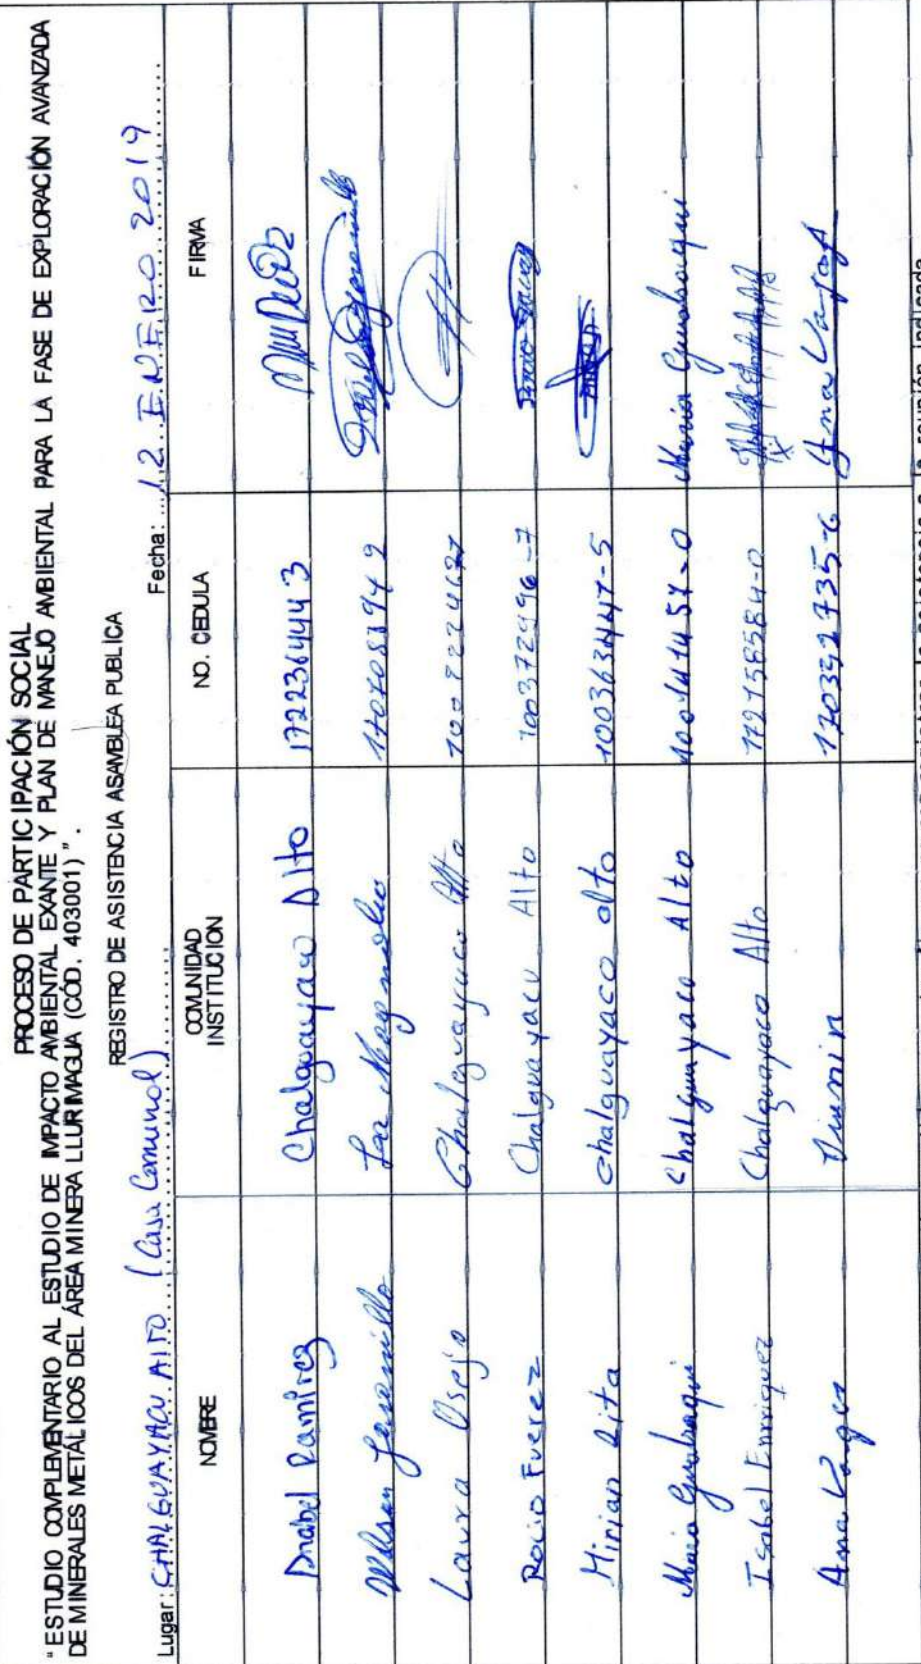 PROCESO DE PARTICIPACIÓN SOCIAL
"ESTUDIO COMPLEMENTARIO AL ESTUDIO DE IMPACTO AMBIENTAL EXANTE Y PLAN DE MANEJO AMBIENTAL PARA LA FASE DE EXPLORACIÓN AVANZADA
DE MINERALES METÁLICOS DEL ÁREA MINERA LLURIMAGUA (CÓD. 403001)".
REGISTRO DE ASISTENCIA ASAMBLEA PUBLICA
Lugar: CHALGUAYACU ALTO (Casa Comunal) Fecha: 12 ENERO 2019
NOMBRE COMUNIDAD INSTITUCION NO. CEDULA FIRMA
Anabel Ramírez Chalguayacu Alto 1723644443
Wilson Jaramillo La Magnolia
Laura Osejo Chalguayaco Alto
Rocio Fuerez Chalguayacu Alto 100372996-7
Mirian Pita Chalguayaco alto 100363447-5
Maria Gualsaqui Chalguayaco Alto Maria Gualsaqui
Isabel Enriquez Chalguayaco Alto
Ana Vargas Ana Vargas
la reunión indicada